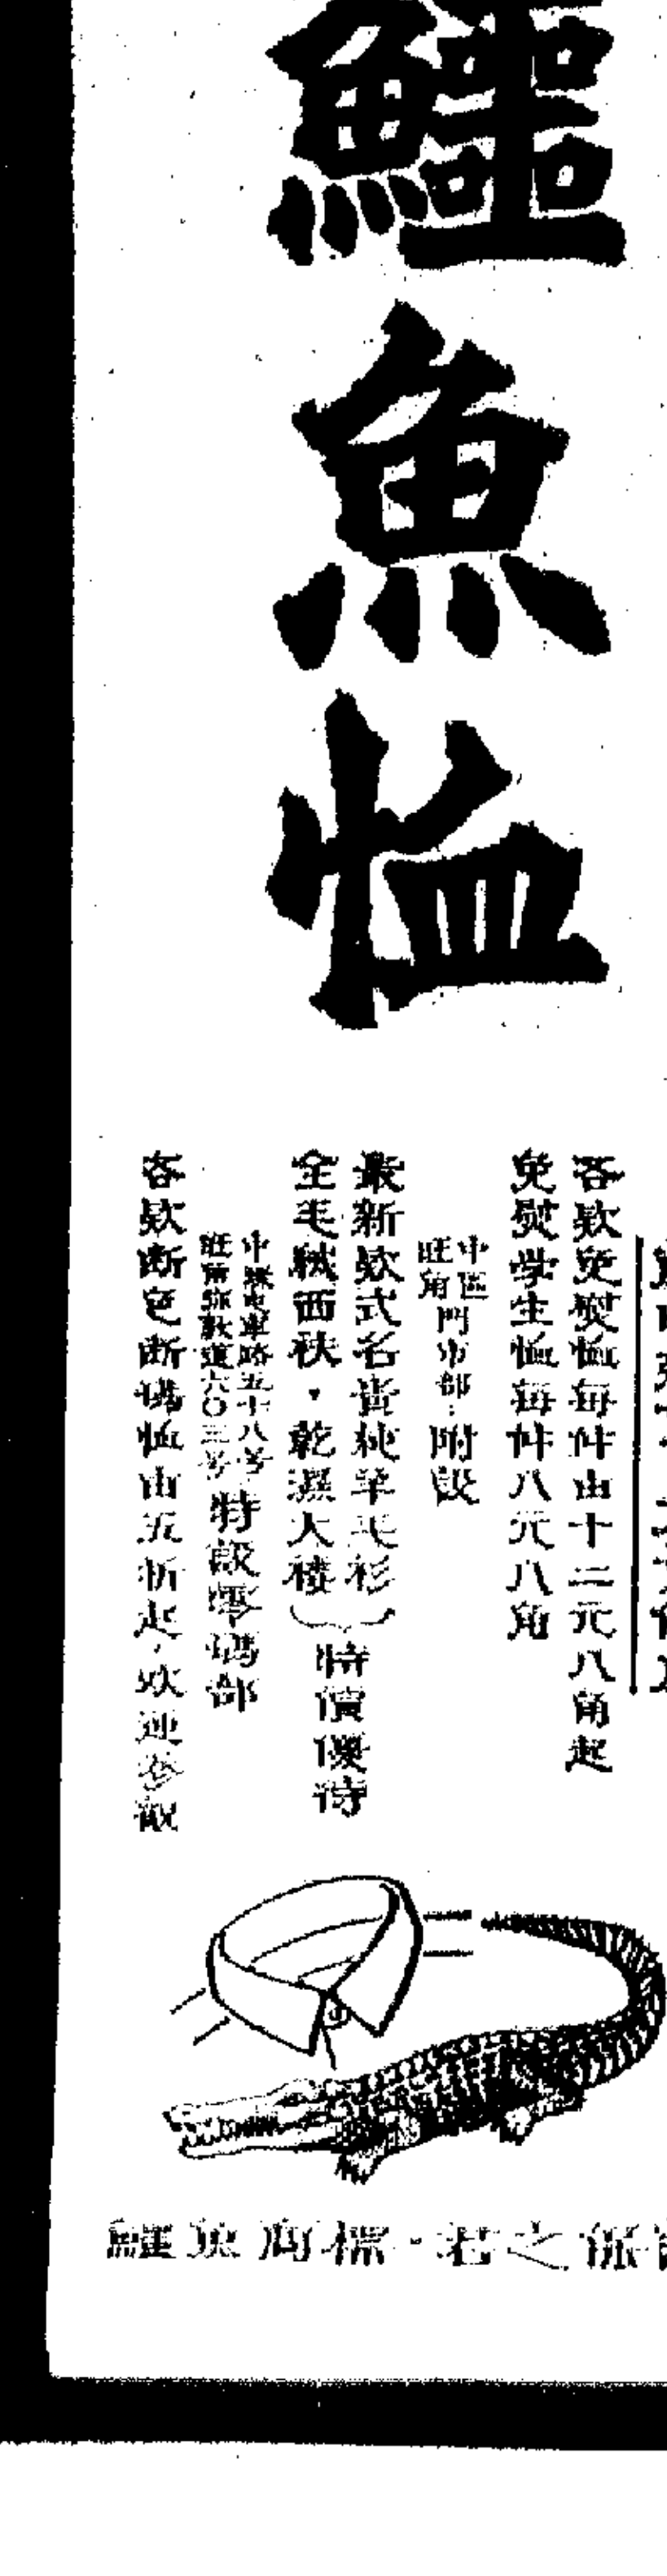 鱷魚恤
各欵免熨恤每件由十二元八角起
免熨学生恤每件八元八角
中區
旺角
門市部·附設
最新欵式名貴純羊毛衫
全毛絨西秋·乾濕大褸
特價優待
中環 車路五十八号
旺角弥敦道六〇三号
特設零碼部
各欵断色断碼恤由五折起，欢迎参观
鱷魚商標·君之